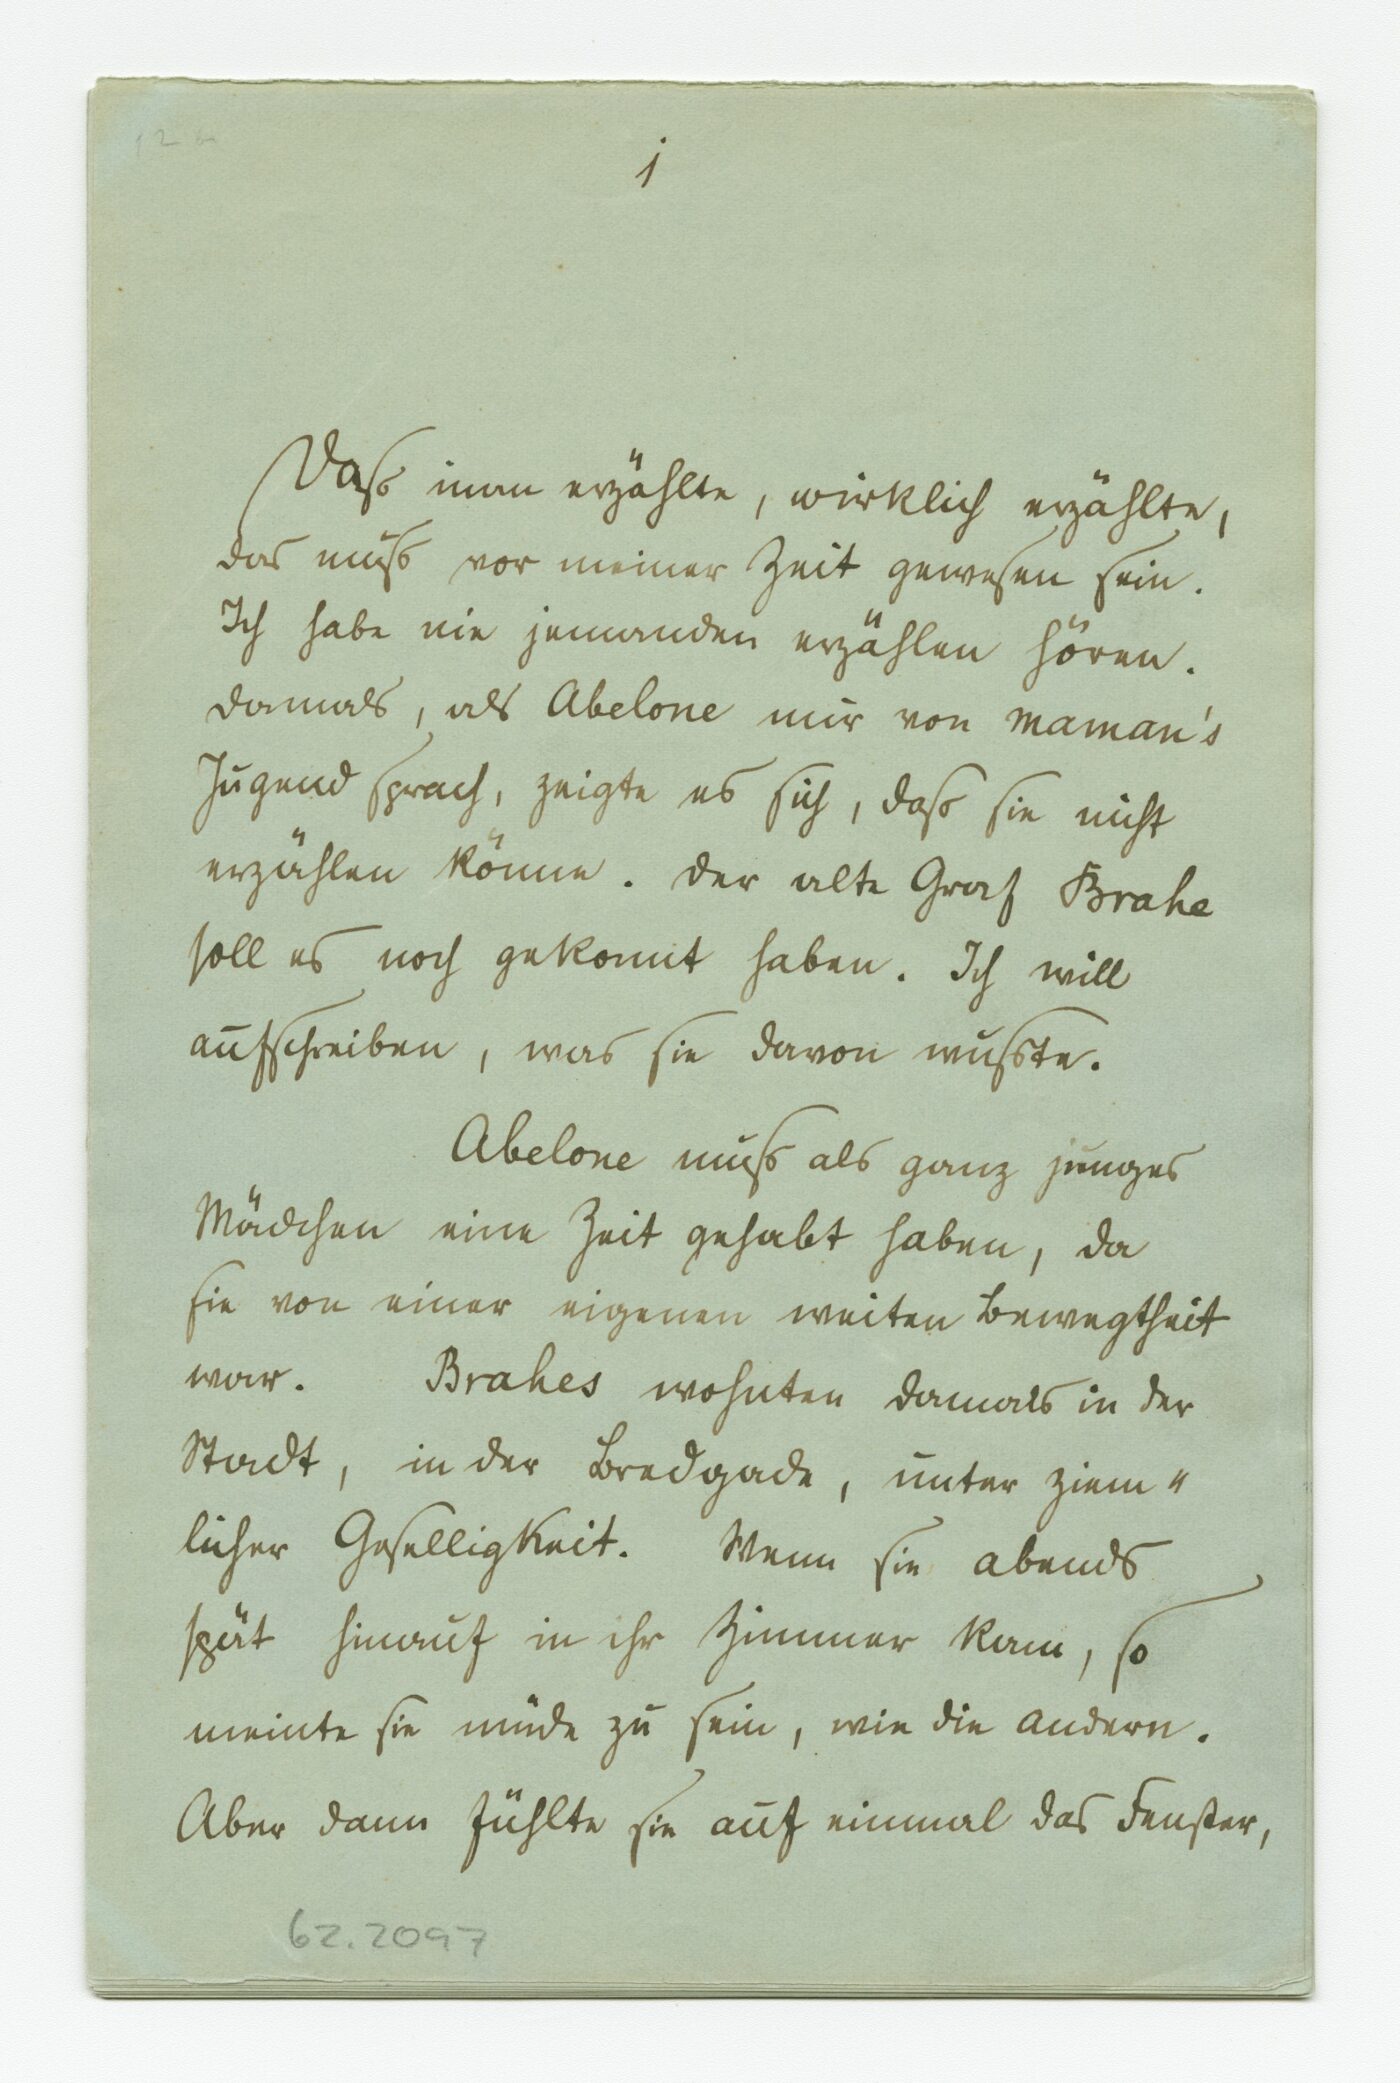 1
Daß man erzählte, wirklich erzählte,
das muß vor meiner Zeit gewesen sein.
Ich habe nie jemanden erzählen hören.
Damals, als Abelone mir von Maman's
Jugend sprach, zeigte es sich, daß sie nicht
erzählen könne. Der alte Graf Brahe
soll es noch gekonnt haben. Ich will
aufschreiben, was sie davon wusste.
Abelone muß als ganz junges
Mädchen eine Zeit gehabt haben, da
sie von einer eigenen weiten Bewegtheit
war. Brahes wohnten damals in der
Stadt, in der Bredgade, unter ziem=
licher Geselligkeit. Wenn sie abends
spät hinauf in ihr Zimmer kam, so
meinte sie müde zu sein, wie die andern.
Aber dann fühlte sie auf einmal das Fenster,
62.2097